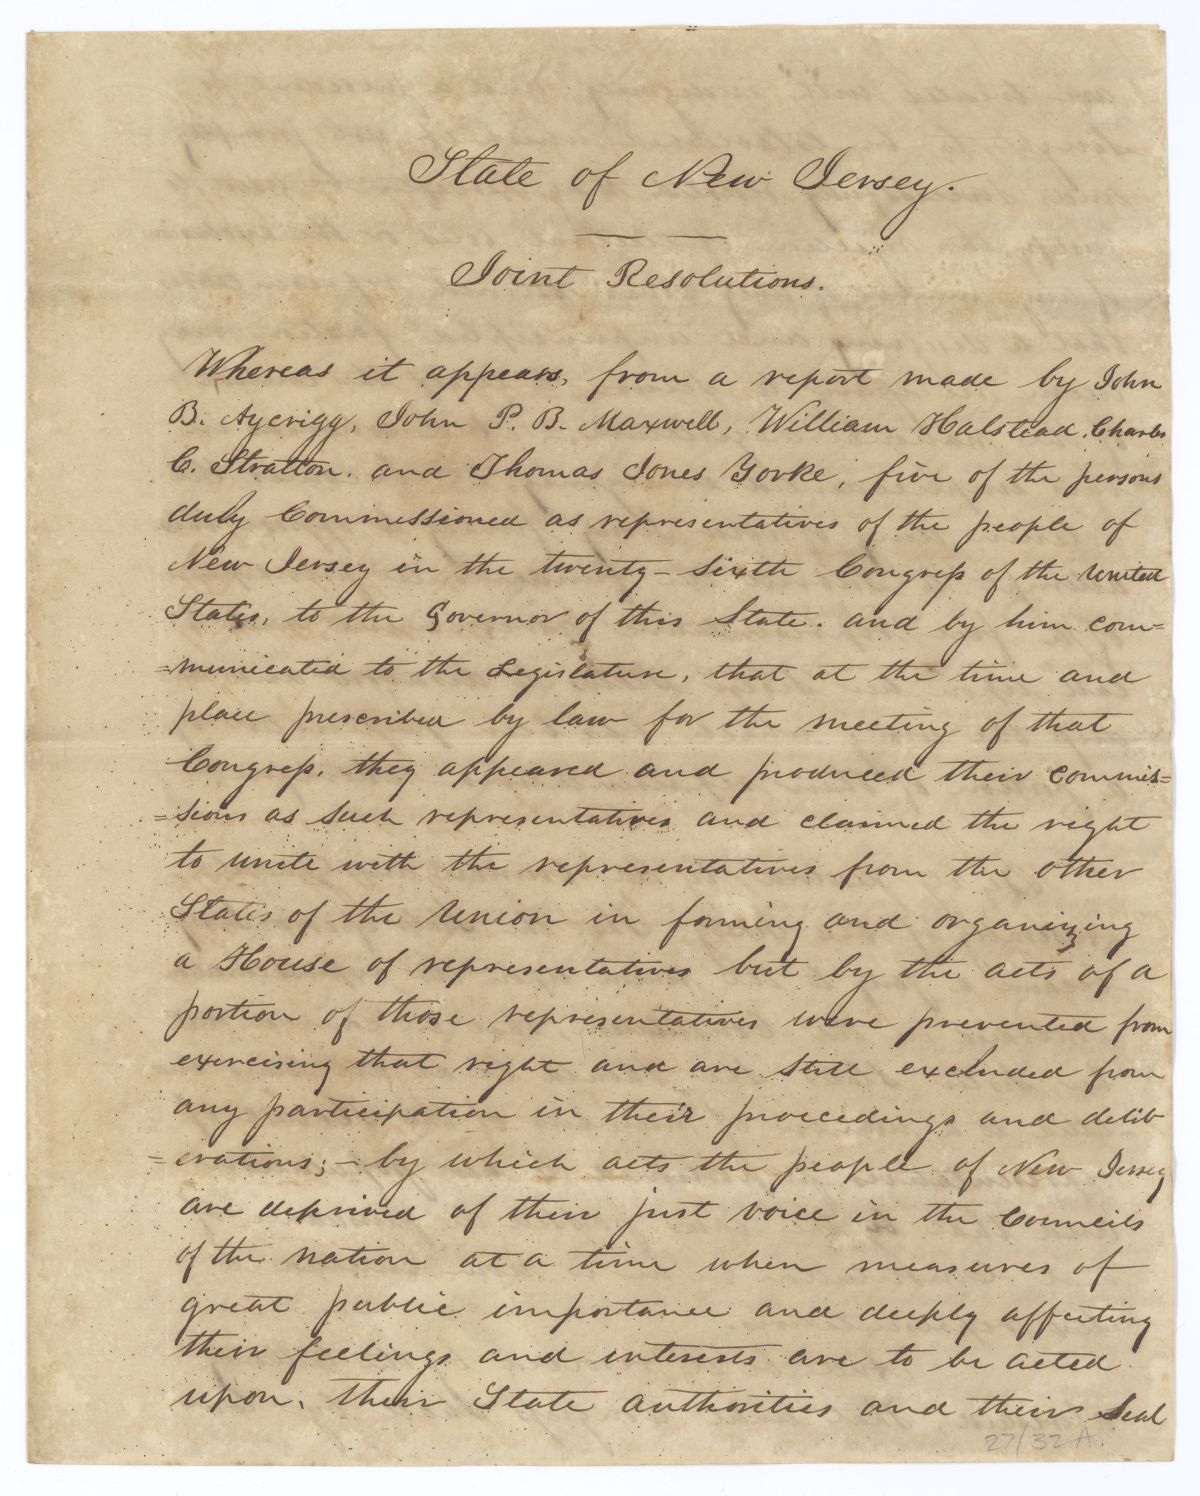 State of New Jersey.
Joint Resolutions.
Whereas it appears, from a report made by John
B. Aycrigg, John P. B. Maxwell, William Halstead, Charles
C. Stratton, and Thomas Jones Yorke, five of the persons
duly Commissioned as representatives of the people of
New Jersey in the twenty-sixth Congress of the United
States, to the Governor of this State. and by him com=
=municated to the Legislature, that at the time and
place prescribed by law for the meeting of that
Congress, they appeared and produced their commis=
=sions as such representatives and claimed the right
to unite with the representatives from the other
States of the Union in forming and organizing
a House of representatives but by the acts of a
portion of those representatives were prevented from
exercising that right and are still excluded from
any participation in their proceedings and delib
=erations; - by which acts the people of New Jersey
are deprived of their just voice in the Councils
of the nation at a time when measures of
great public importance and deeply affecting
their feelings and interests are to be acted
upon, their State authorities and their Seal
27/32 A